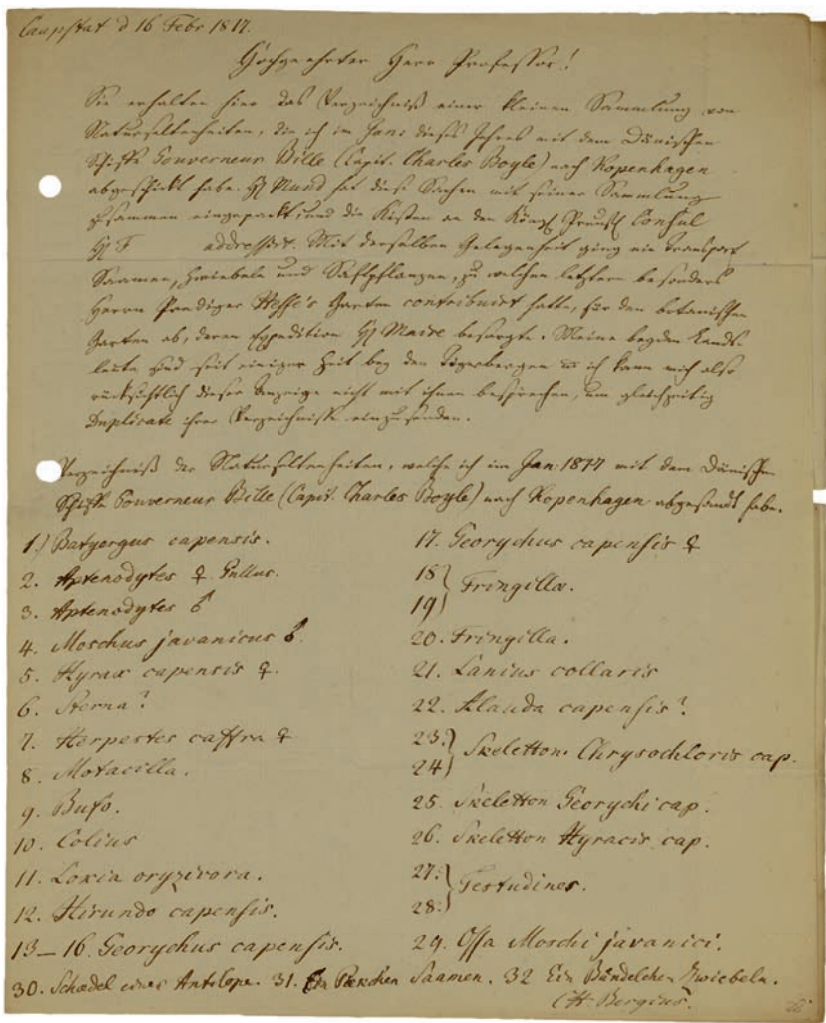 Caapstat d 16 Febr 1817.
Hochgeehrter Herr Professor!
Sie erhalten hier das Verzeichniß einer kleinen Sammlung von
Naturseltenheiten, die ich im Jani dieses Jahres mit dem Dänischen
Schiffe Gouverneur Bille (Capit. Charles Boyle) nach Kopenhagen
abgeschickt habe. H Mund hat diese Sachen mit seiner Sammlung
zusammen eingepackt, und die Kisten an den Königl Preußl Consul
H F addressirt. Mit derselben Gelegenheit ging ein Transport
Saamen, Zwiebeln und Saftpflanzen, zu welchen letztern besonders
Herrn Prediger Hesse's Garten contribuirt hatte, für den botanischen
Garten ab, deren Expedition H Maire besorgte. Meine beyden Lands-
leute sind seit einiger Zeit bey den Tigerbergen u ich kann mich also
rücksichtlich dieser Anzeige nicht mit ihnen besprechen, um gleichzeitig
Duplicate ihrer Verzeichnisse einzusenden.
Verzeichniß der Naturseltenheiten, welche ich im Jan: 1817 mit dem Dänischen
Schiffe Gouverneur Bille (Capit. Charles Boyle) nach Kopenhagen abgesandt habe.
1.) Bathyergus capensis.
2. Aptenodytes ♀ Pullus.
3. Aptenodytes ♂
4. Moschus javanicus ♂
5. Hyrax capensis ♀.
6. Sterna?
7. Herpestes caffra ♀
8. Motacilla.
9. Bufo.
10. Colius
11. Loxia oryzivora.
12. Hirundo capensis.
13–16. Georychus capensis.
17. Georychus capensis ♀
18
19 } Fringillæ.
20. Fringilla.
21. Lanius collaris
22. Alauda capensis?
23.
24 } Skeletton Chrysochloris cap.
25. Skeletton Georychi cap.
26. Skeletton Hyracis cap.
27.
28. } Testudines.
29. Ossa Moschi javanici.
30. Schædel eines Antilope. 31. Ein Päckchen Saamen. 32 Ein Bündelchen Zwiebeln.
CH. Bergius.